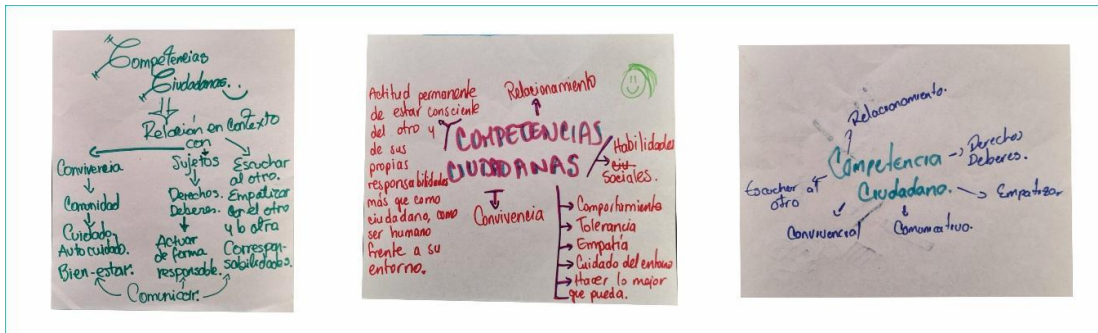 Competencias
Ciudadanas.
Relación en contexto
con
Convivencia
Comunidad
Cuidado,
Autocuidado.
Bien-estar.
Sujetos
Derechos.
Deberes.
Actuar
de forma
responsable.
Escuchar
al otro.
Empatizar
con el otro
y la otra
Correspon-
sabilidades.
Comunicar.
Actitud permanente
de estar consciente
del otro y
de sus
propias
responsabilidades
más que como
ciudadano, como
ser humano
frente a su
entorno.
Relacionamiento
COMPETENCIAS
CIUDADANAS
Habilidades
sociales.
Convivencia
Comportamiento
Tolerancia
Empatía
Cuidado del entorno
Hacer lo mejor
que pueda.
Relacionamiento.
Competencia
Ciudadano.
Derechos
Deberes.
Empatizar
Escuchar al
otro
Convivencia